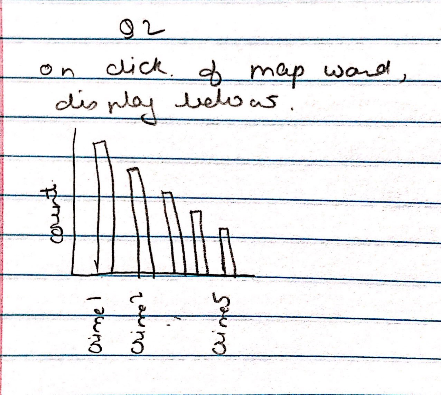 Q2
on click of map ward,
display below.
count
crime1
crime2
crime5